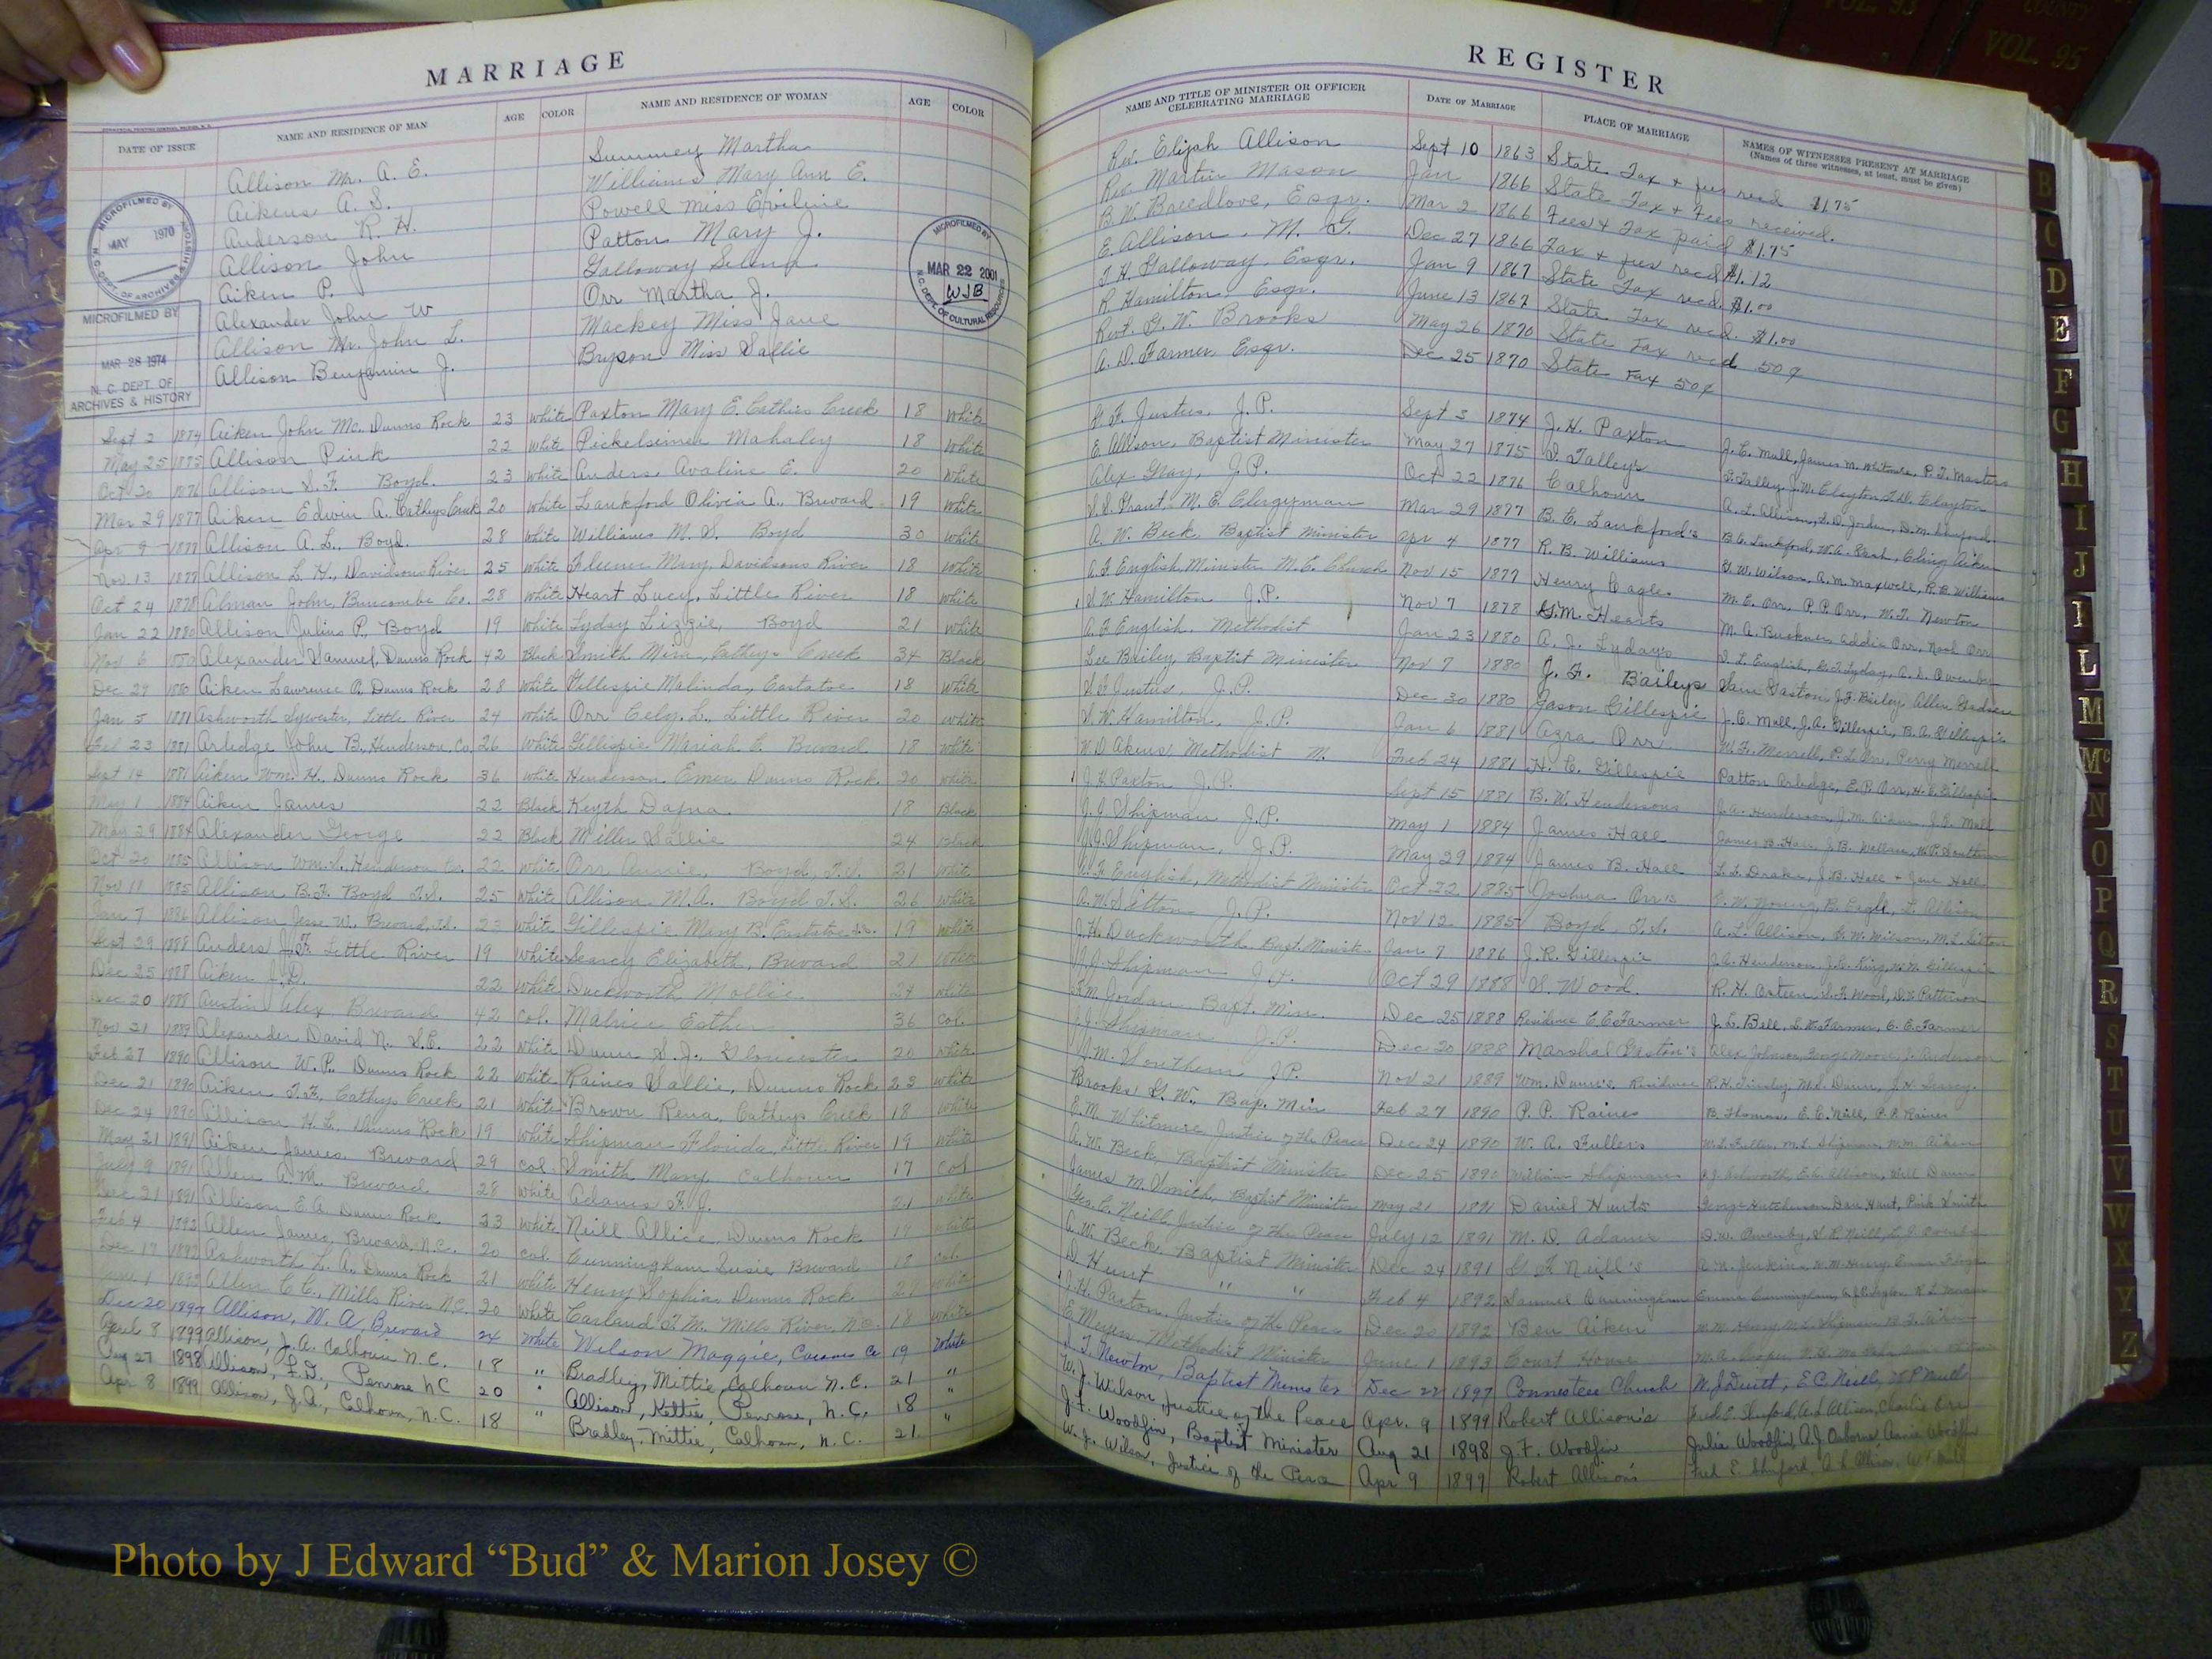 MARRIAGE
DATE OF ISSUE NAME AND RESIDENCE OF MAN AGE COLOR NAME AND RESIDENCE OF WOMAN AGE COLOR
Allison Mr. A. E. Summey Martha
Aikens A. S. Williams Mary Ann E.
Anderson R. H. Powell Miss Eviline
Allison John Patton Mary J.
Aiken P. Galloway Selena
Alexander John W Orr Martha J.
Allison Mr. John L. Mackey Miss Jane
Allison Benjamin J. Bryson Miss Sallie
MICROFILMED BY
MAY 1970
N. C. DEPT. OF ARCHIVES & HISTORY
MICROFILMED BY
MAR 28 1974
N. C. DEPT. OF
ARCHIVES & HISTORY
MICROFILMED BY
MAR 22 2001
WJB
N.C. DEPT. OF CULTURAL RESOURCES
Sept 2 1874 Aiken John Mc. Dunns Rock 23 White Paxton Mary E. Cathies Creek 18 White
May 25 1875 Allison Pink 22 White Pickelsimer Mahaley 18 White
Oct 20 1876 Allison S. F. Boyd. 23 White Anders Avaline E. 20 White
Mar 29 1877 Aiken Edwin A. Cathys Creek 20 White Lankford Olivia A., Brevard 19 White
Apr 9 1877 Allison A. L., Boyd. 28 White Williams M. S. Boyd 30 White
Nov 13 1877 Allison L. H., Davidsons River 25 White Mary, Davidsons River 18 White
Oct 24 1878 Alman John, Buncombe Co. 28 White Heart Lucy, Little River 18 White
Jan 22 1880 Allison Julius P., Boyd 19 White Lyday Lizzie, Boyd 21 White
Nov 6 1880 Alexander Samuel, Dunns Rock 42 Black Smith Mira, Catheys Creek 34 Black
Dec 29 1880 Aiken Lawrence P. Dunns Rock 28 White Gillespie Malinda, Eastatoe 18 White
Jan 5 1881 Ashworth Sylvester, Little River 24 White Orr Cely. L. Little River 20 White
Feb 23 1881 Arledge John B. Henderson Co. 26 White Gillispie Mariah C. Brevard 18 White
Sept 14 1881 Aiken Wm. H., Dunns Rock 36 White Henderson Emer Dunns Rock 20 White
May 1 1884 Aiken James 22 Black Keyth Dafna 18 Black
May 29 1884 Alexander George 22 Black Miller Sallie 24 Black
Oct 20 1885 Allison Wm. S., Henderson Co. 22 White Orr Annie, Boyd, T.S. 21 White
Nov 11 1885 Allison B. F. Boyd T.S. 25 White Allison M. A. Boyd T.S. 26 White
Jan 7 1886 Allison Jesse W. Brevard, T.S. 23 White Gillespie Mary B. Eastatoe T.S. 19 White
Sept 29 1888 Anders J. F. Little River 19 White Searcy Elizabeth, Brevard 21 White
Dec 25 1888 Aiken J. D. 22 White Duckworth Mollie 24 White
Dec 20 1888 Austin Alex Brevard 42 col. Esther 36 col.
Nov 21 1889 Alexander David N. S.C. 22 White Dunn S. J., Gloucester 20 White
Feb 27 1890 Allison W. P. Dunns Rock 22 White Raines Sallie, Dunns Rock 23 White
Dec 21 1890 Aiken T. F., Cathys Creek 21 White Brown Rena, Cathys Creek 18 White
Dec 24 1890 Allison H. L., Dunns Rock 19 White Shipman Florida, Little River 19 White
May 21 1891 Aiken James Brevard 29 col. Smith Mary Calhoun 17 Col
July 9 1891 Allen A. M. Brevard 28 White Adams F. J. 21 White
Dec 21 1891 Allison E. A. Dunns Rock 23 White Neill Allice, Dunns Rock 19 White
Feb 4 1892 Allen James, Brevard, N.C. 20 col. Cunningham Susie Brevard 18 col.
Dec 17 1892 Ashworth L. A., Dunns Rock 21 White Henry Sophia Dunns Rock 21 White
June 1 1893 Allen C. C., Mills River N.C. 20 White Garland S. M. Mills River, N.C. 18 White
Dec 20 1897 Allison, W. A., Brevard 24 White Wilson Maggie, 19 White
April 8 1899 Allison, J. A. Calhoun N.C. 18 " Bradley, Mittie, Calhoun N.C. 21 "
Aug 27 1898 Allison, F. D., Penrose NC 20 " Allison, Kettie, Penrose, N.C. 18 "
Apr. 8 1899 Allison, J. A., Calhoun, N.C. 18 " Bradley, Mittie, Calhoun, N.C. 21 "
REGISTER
NAME AND TITLE OF MINISTER OR OFFICER CELEBRATING MARRIAGE DATE OF MARRIAGE PLACE OF MARRIAGE NAMES OF WITNESSES PRESENT AT MARRIAGE
(Names of three witnesses, at least, must be given)
Rev. Elijah Allison Sept 10 1863 State Tax + fees recd $1.75
Rev Martin Mason Jan 1866 State Tax + Fees received.
B. W. Breedlove, Esqr. Mar 2 1866 Fees & Tax paid $1.75
E. Allison, M. G. Dec 27 1866 Tax + fees recd $1.12
T. H. Galloway, Esqr. Jan 9 1867 State Tax recd. $1.00
R. Hamilton, Esqr. June 13 1867 State Tax recd. $1.00
Revt. G. W. Brooks May 26 1870 State Tax recd 50¢
A. D. Farmer Esqr. Dec 25 1870 State Tax 50¢
J. F. Justus, J. P. Sept 3 1874 J. H. Paxton J. C. Mull, James M. Whitmire, P. T. Masters
E. Allison, Baptist Minister May 27 1875 D. Talley's D. Talley, J. W. Clayton, Clayton
Alex. Gray, J. P. Oct 22 1876 Calhoun A. L. Allison, F. D. Jordan, D. M. Shuford
M. E. Clergyman Mar 29 1877 B. C. Lankford's B. C. Lankford, Aiken
A. W. Beck Baptist Minister Apr 4 1877 R. B. Williams G. W. Wilson, A. M. Maxwell, R. B. Williams
A. F. English, Minister M.E. Church Nov 15 1877 Henry Cagle M. E. Orr, P. P. Orr, W. T. Newton
S. W. Hamilton J. P. Nov 7 1878 G. M. Hearts M. A. Buckner, Addie Orr, Noah Orr
A. F. English, Methodist Jan 23 1880 A. J. Lydays S. L. English,
Lee Briley, Baptist Minister Nov 7 1880 J. F. Baileys Sam Gaston, J. F. Bailey, Allen Gadsen
Justus, J. P. Dec 30 1880 Jason Gillespie J. C. Mull, J. A. Gillespie, B. A. Gillespie
S. W. Hamilton, J. P. Jan 6 1881 Azra Orr W. F. Merrell, P. L. Orr, Perry Merrell
W. D. Akens Methodist M. Feb 24 1881 H. C. Gillespie Patton Arledge, E. P. Orr, H. C. Gillespie
J. H. Paxton J. P. Sept 15 1881 B. W. Hendersons J. A. Henderson, J. M. Aiken,
Shipman J. P. May 1 1884 James Hall James B. Hall, J. B. Wallace,
Shipman, J. P. May 29 1884 James B. Hall J. B. Hall + Jane Hall
English, Methodist Minister Oct 22 1885 Joshua Orr's L. Allison
A. W. Sitton J. P. Nov 12 1885 Boyd T.S. A. L. Allison, G. W. Wilson, M. L. Sitton
J. H. Duckworth Bapt. Minister Jan 7 1886 J. R. Gillespie J. A. Henderson, J. C. King,
Shipman J. P. Oct 29 1888 S. Wood R. H. Osteen, S. F. Wood, Patterson
Jordan Bapt. Min. Dec 25 1888 Residence C. E. Farmer J. L. Bell, Farmer, C. E. Farmer
Shipman J. P. Dec 20 1888 Marshal Gaston's Alex Johnson, George Moore, J. Anderson
Southern J. P. Nov 21 1889 Wm. Dunn's Residence R. H. Tinsley, Dunn, J. H. Searcy
Brooks G. W., Bap. Min Feb 27 1890 P. P. Raines B. Thomas, E. C. Neill, P. P. Raines
E. M. Whitmire Justice of the Peace Dec 24 1890 W. A. Fullers Shipman, Aiken
A. W. Beck, Baptist Minister Dec 25 1890 William Shipman Allison, Will Dunn
James M. Smith, Baptist Minister May 21 1891 Daniel Hunts George Hutchison, Dan Hunt, Pink Smith
Geo. C. Neill, Justice of the Peace July 12 1891 M. D. Adams Owenby,
A. W. Beck Baptist Minister Dec 24 1891 G. F. Neill's
D. Hunt " " Feb 4 1892 Samuel Cunningham Emma Cunningham,
J. H. Paxton, Justice of the Peace Dec 20 1892 Ben Aiken
E. Meyers Methodist Minister June 1 1893 Court House
Newton, Baptist Minister Dec 22 1897 Connestee Church E. C. Neill,
W. J. Wilson Justice of the Peace Apr. 9 1899 Robert Allison's Fred E. Shuford, A. L. Allison, Charlie Orr
J. F. Woodfin, Baptist Minister Aug 21 1898 J. F. Woodfin Julia Woodfin, A. J. Osborne, Annie Woodfin
W. J. Wilson, Justice of the Peace Apr 9 1899 Robert Allison's Fred E. Shuford, A. L. Allison,
VOL. 93
COUNTY
VOL. 95
B
C
D
E
F
G
H
I
J
K
L
M
Mc
N
O
P
Q
R
S
T
U
V
W
X
Y
Z
Photo by J Edward “Bud” & Marion Josey ©